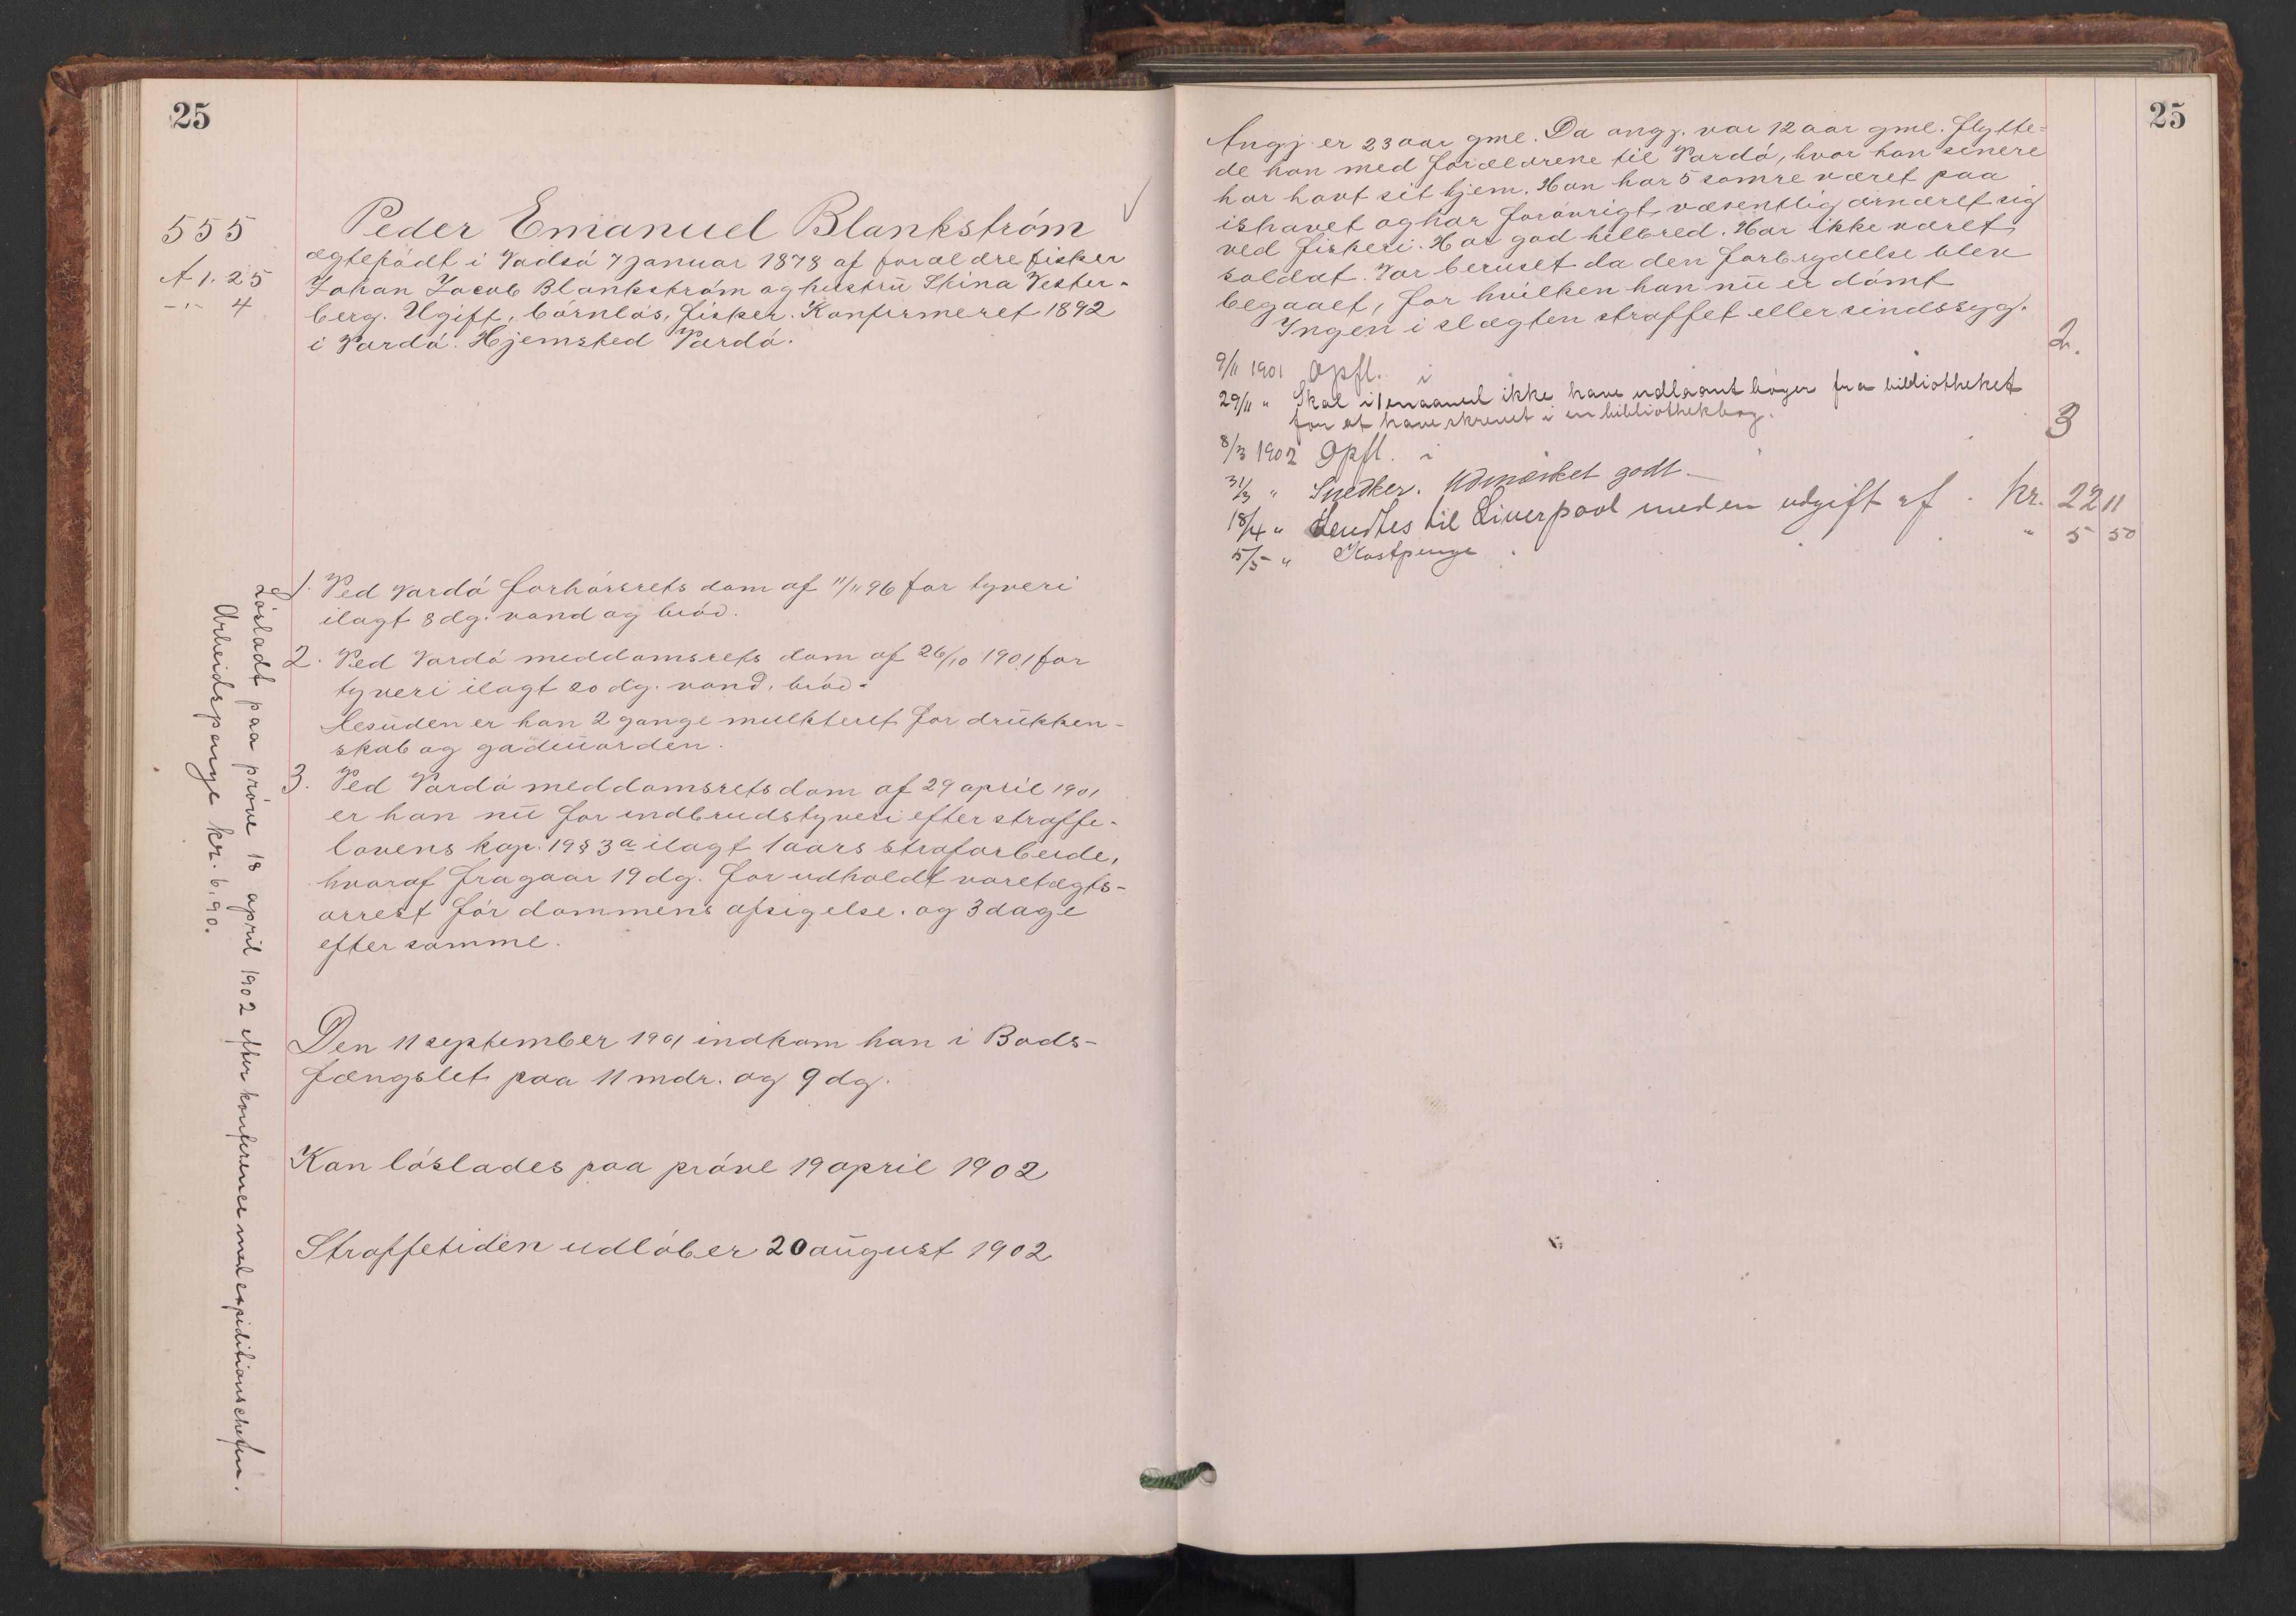 25
555
A 1. 25
-"- 4
Peder Emanuel Blankström
ægtefødt i Vadsø 7 januar 1878 af forældre fisker
Johan Jacob Blankström og hustru Stina Vester-
berg. Ugift, børnløs, fisker. Konfirmeret 1892
i Vardø. Hjemsted Vardø.
1. Ved Vardø forhørsrets dom af 11/11 96 for tyveri
ilagt 8 dg. vand og brød.
2. Ved Vardø meddomsrets dom af 26/10 1901 for
tyveri ilagt 20 dg. vand. brød.
Desuden er han 2 gange mulkteret for drukken-
skab og gadeuorden.
3. Ved Vardø meddomsrets dom af 29 april 1901
er han nu for indbrudstyveri efter straffe-
lovens kap. 19 § 3 a ilagt 1 aars strafarbeide,
hvoraf fragaar 19 dg. for udholdt varetægts-
arrest før dommens afsigelse. og 3 dage
efter samme.
Den 11 september 1901 indkom han i Bods-
fængslet paa 11 mdr. og 9 dg.
Kan løslades paa prøve 19 april 1902
Straffetiden udløber 20 august 1902
Løsladt paa prøve 18 april 1902 efter konference med expeditionschefen.
Arbeidspenge kr. 6.90.
25
Angj. er 23 aar gml. Da angj. var 12 aar gml. flytte-
de han med forældrene til Vardø, hvor han senere
har havt sit hjem. Han har 5 somre været paa
ishavet og har forøvrigt væsentlig ernæret sig
ved fiskeri. Har god helbred. Har ikke været
soldat. Var beruset da den forbrydelse blev
begaaet, for hvilken han nu er dømt
Ingen i slægten straffet eller sindssyg.
9/11 1901 Opfl. i 2.
29/11 " Skal i 1 maaned ikke have udlaant bøger fra bibliotheket
for at have skrevet i en bibliothekbog.
8/3 1902 Opfl. i 3
31/3 " Snedker. Udmærket godt
18/4 " Sendtes til Liverpool med en udgift af . kr. 22 11
5/5 " Kostpenge . " 5 50